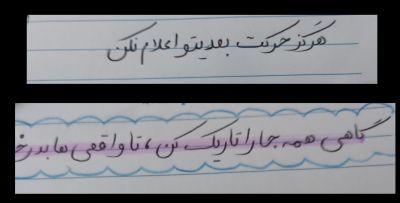 هرگز حرکت بعدیتو اعلام نکن
گاهی همه جا را تاریک کن، تا واقعی ها بدرخ